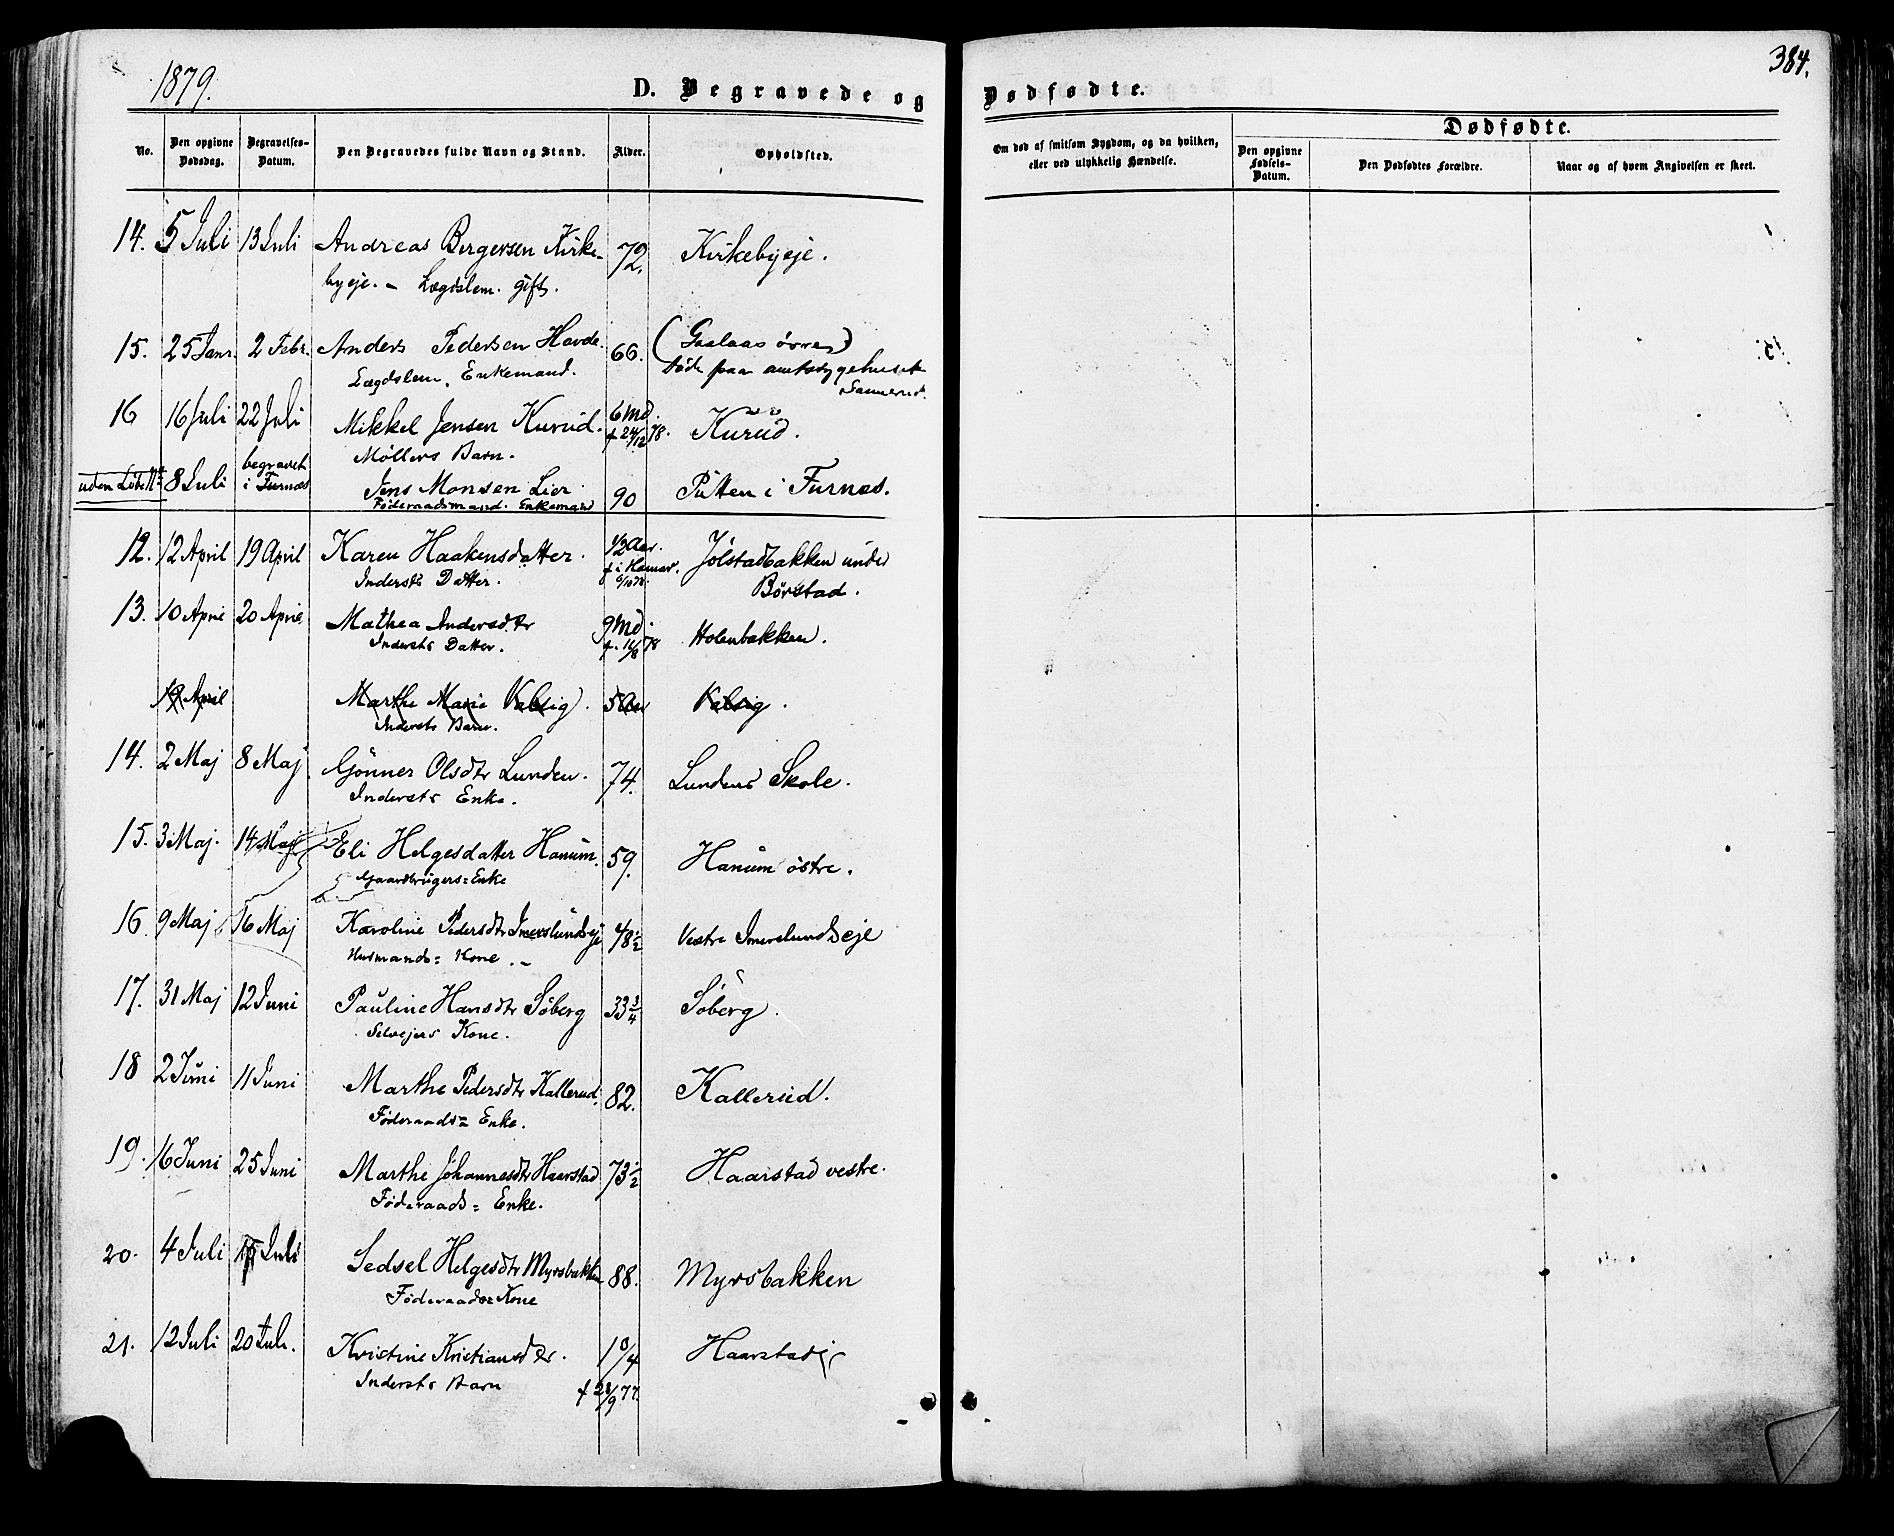 1879.
384.
D. Begravede og Dødfødte.
No.
Den opgivne Dødsdag.
Begravelses-Datum.
Den Begravedes fulde Navn og Stand.
Alder.
Opholdsted.
Om død af smitsom Sygdom, og da hvilken, eller ved ulykkelig Hændelse.
Dødfødte.
Den opgivne Fødsels-Datum.
Den Dødfødtes Forældre.
Naar og af hvem Angivelsen er skeet.
14. 5 Juli 13 Juli Andreas Bergersen Kirke- 72. Kirkebyeje.
byeje. - Lægdslem. gift.
15. 25 Janr. 2 Febr. Anders Pedersen Hovde. 66. (Gaalaas øvre)
Lægdslem, Enkemand. døde paa amtssygehuset
Sannerud.
16 16 Juli 22 Juli Mikkel Jensen Kurud. 6 Md. Kurud.
Møllers Barn. f 24/12 78.
uden Løbe No 8 Juli begravet i Furnæs Jens Monsen Lier 90 Putten i Furnæs.
Føderaadsmand. Enkemand
12. 12 April 19 April Karen Haakensdatter. 1/2 Aar. Jølstadbakken under
Indersts Datter. f i Hamar. 6/10 78. Børstad.
13. 10 April 20 April Mathea Andersdtr 9 Md. Holenbakken.
Indersts Datter. f. 11/8 78
19 April Marthe Marie Valsig. 5 Aar Valsig.
Inderstr Barn.
14. 2 Maj 8 Maj. Gønner Olsdtr Lunden. 74. Lundens Skole.
Indersts Enke.
15. 3 Maj. 14 Maj Eli Helgesdatter Hanum. 59. Hanum østre.
Gaardbrugers=Enke
16. 9 Maj 16 Maj Karoline Pedersdtr Imerslundseje 48 1/2 Vestre Imerslundseje
Husmands= Kone.-
17. 31 Maj 12 Juni Pauline Hansdtr Søberg 33 3/4 Søberg.
Selvejers Kone.
18 2 Juni 11 Juni Marthe Pedersdtr Kallerud. 82. Kallerud.
Føderaads= Enke.
19. 16 Juni 25 Juni Marthe Johannesdtr Haarstad 73 1/2 Haarstad vestre.
Føderaads= Enke.
20. 4 Juli Juli Sedsel Helgesdtr Myrsbakken 88. Myrsbakken
Føderaads= Kone
21. 12 Juli 20 Juli. Kristine Kristiansdtr. 1 Haarstadeje
Indersts Barn f 28/9 77.